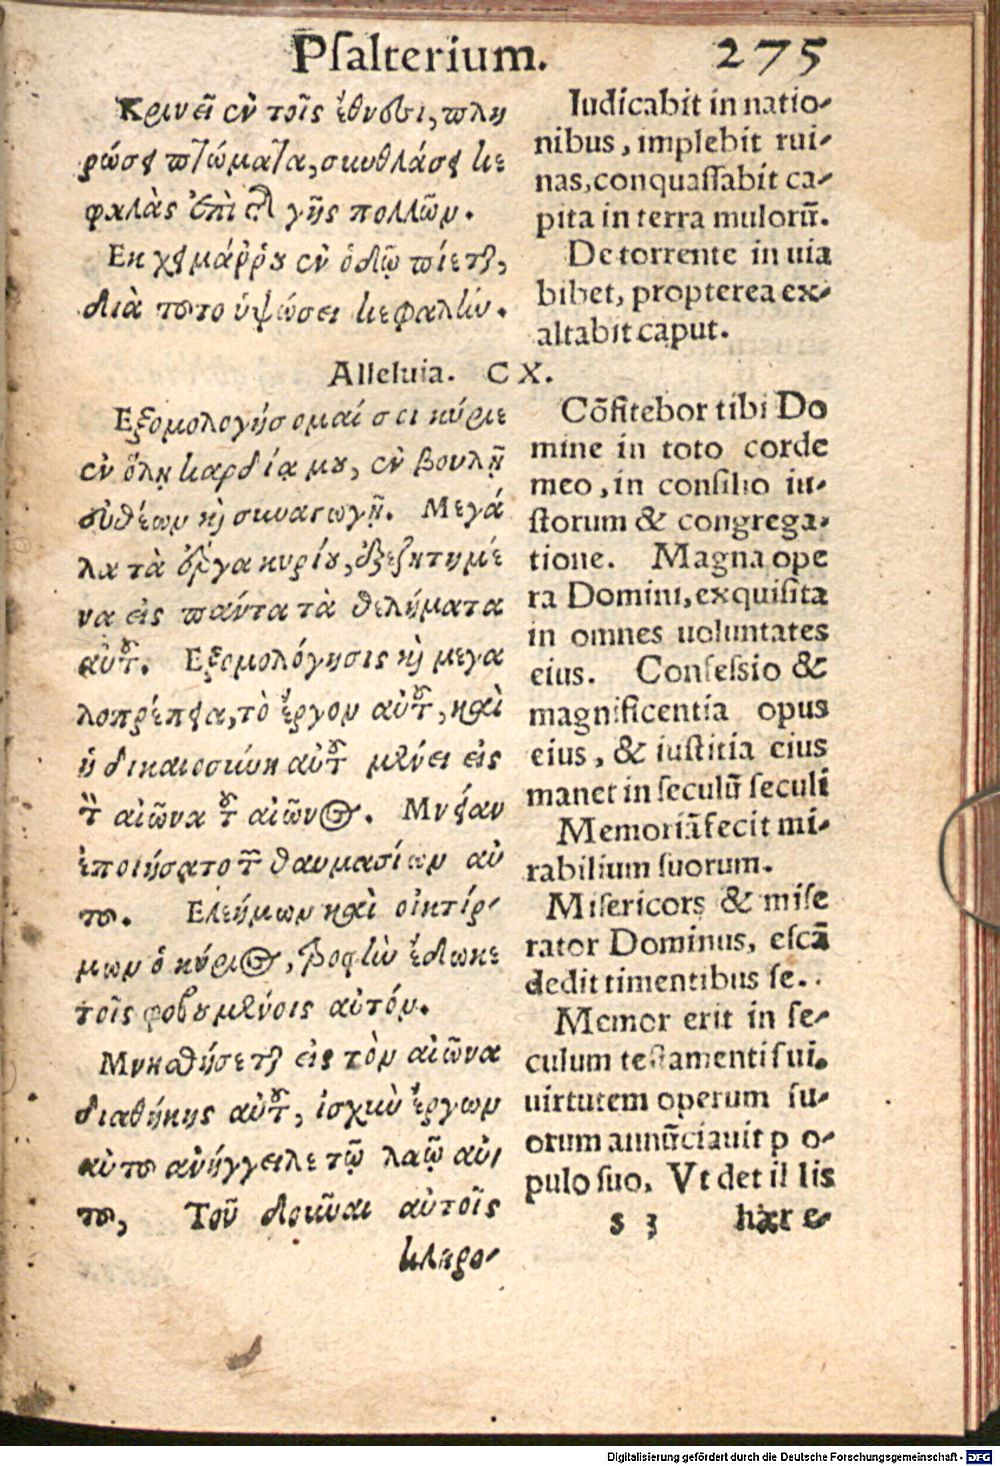 Psalterium. 275
Κρινεῖ ἐν τοῖς ἔθνεσι, πλη
ρώσει πτώματα, συνθλάσει κε
φαλὰς ἐπὶ τῆς γῆς πολλῶν.
Εκ χειμάῤῥου ἐν ὁδῷ πίεται,
διὰ τοῦτο ὑψώσει κεφαλήν.
Iudicabit in natio-
nibus, implebit rui-
nas, conquaſſabit ca-
pita in terra mulorũ.
De torrente in uia
bibet, propterea ex-
altabit caput.
Alleluia. CX.
Εξομολογήσομαί σοι κύριε
ἐν ὅλῃ καρδίᾳ μου, ἐν βουλῇ
εὐθέων καὶ συναγωγῇ. Μεγά
λα τὰ ἔργα κυρίου, ἐξεζητημέ
να εἰς πάντα τὰ θελήματα
αὐτοῦ. Εξομολόγησις καὶ μεγα
λοπρέπεια, τὸ ἔργον αὐτοῦ, καὶ
ἡ δικαιοσύνη αὐτοῦ μένει εἰς
τὸν αἰῶνα τοῦ αἰῶνος. Μνείαν
ἐποιήσατο τῶν θαυμασίων αὐ
τοῦ. Ελεήμων καὶ οἰκτίρ-
μων ὁ κύριος, τροφὴν ἔδωκε
τοῖς φοβουμένοις αὐτόν.
Μνησθήσεται εἰς τὸν αἰῶνα
διαθήκης αὐτοῦ, ἰσχὺν ἔργων
αὐτοῦ ἀνήγγειλε τῷ λαῷ αὐ
τοῦ, Τοῦ δοῦναι αὐτοῖς
κληρο-
Cõfitebor tibi Do
mine in toto corde
meo, in conſilio iu-
ſtorum & congrega-
tione. Magna ope
ra Domini, exquiſita
in omnes uoluntates
eius. Confeſsio &
magnificentia opus
eius, & iuſtitia eius
manet in ſeculũ ſeculi
Memoriã fecit mi-
rabilium ſuorum.
Miſericors & miſe
rator Dominus, eſcã
dedit timentibus ſe.
Memor erit in ſe-
culum teſtamenti ſui.
uirtutem operum ſu-
orum annũciauit po-
pulo ſuo, Vt det illis
s 3 hære-
Digitalisierung gefördert durch die Deutsche Forschungsgemeinschaft - DFG